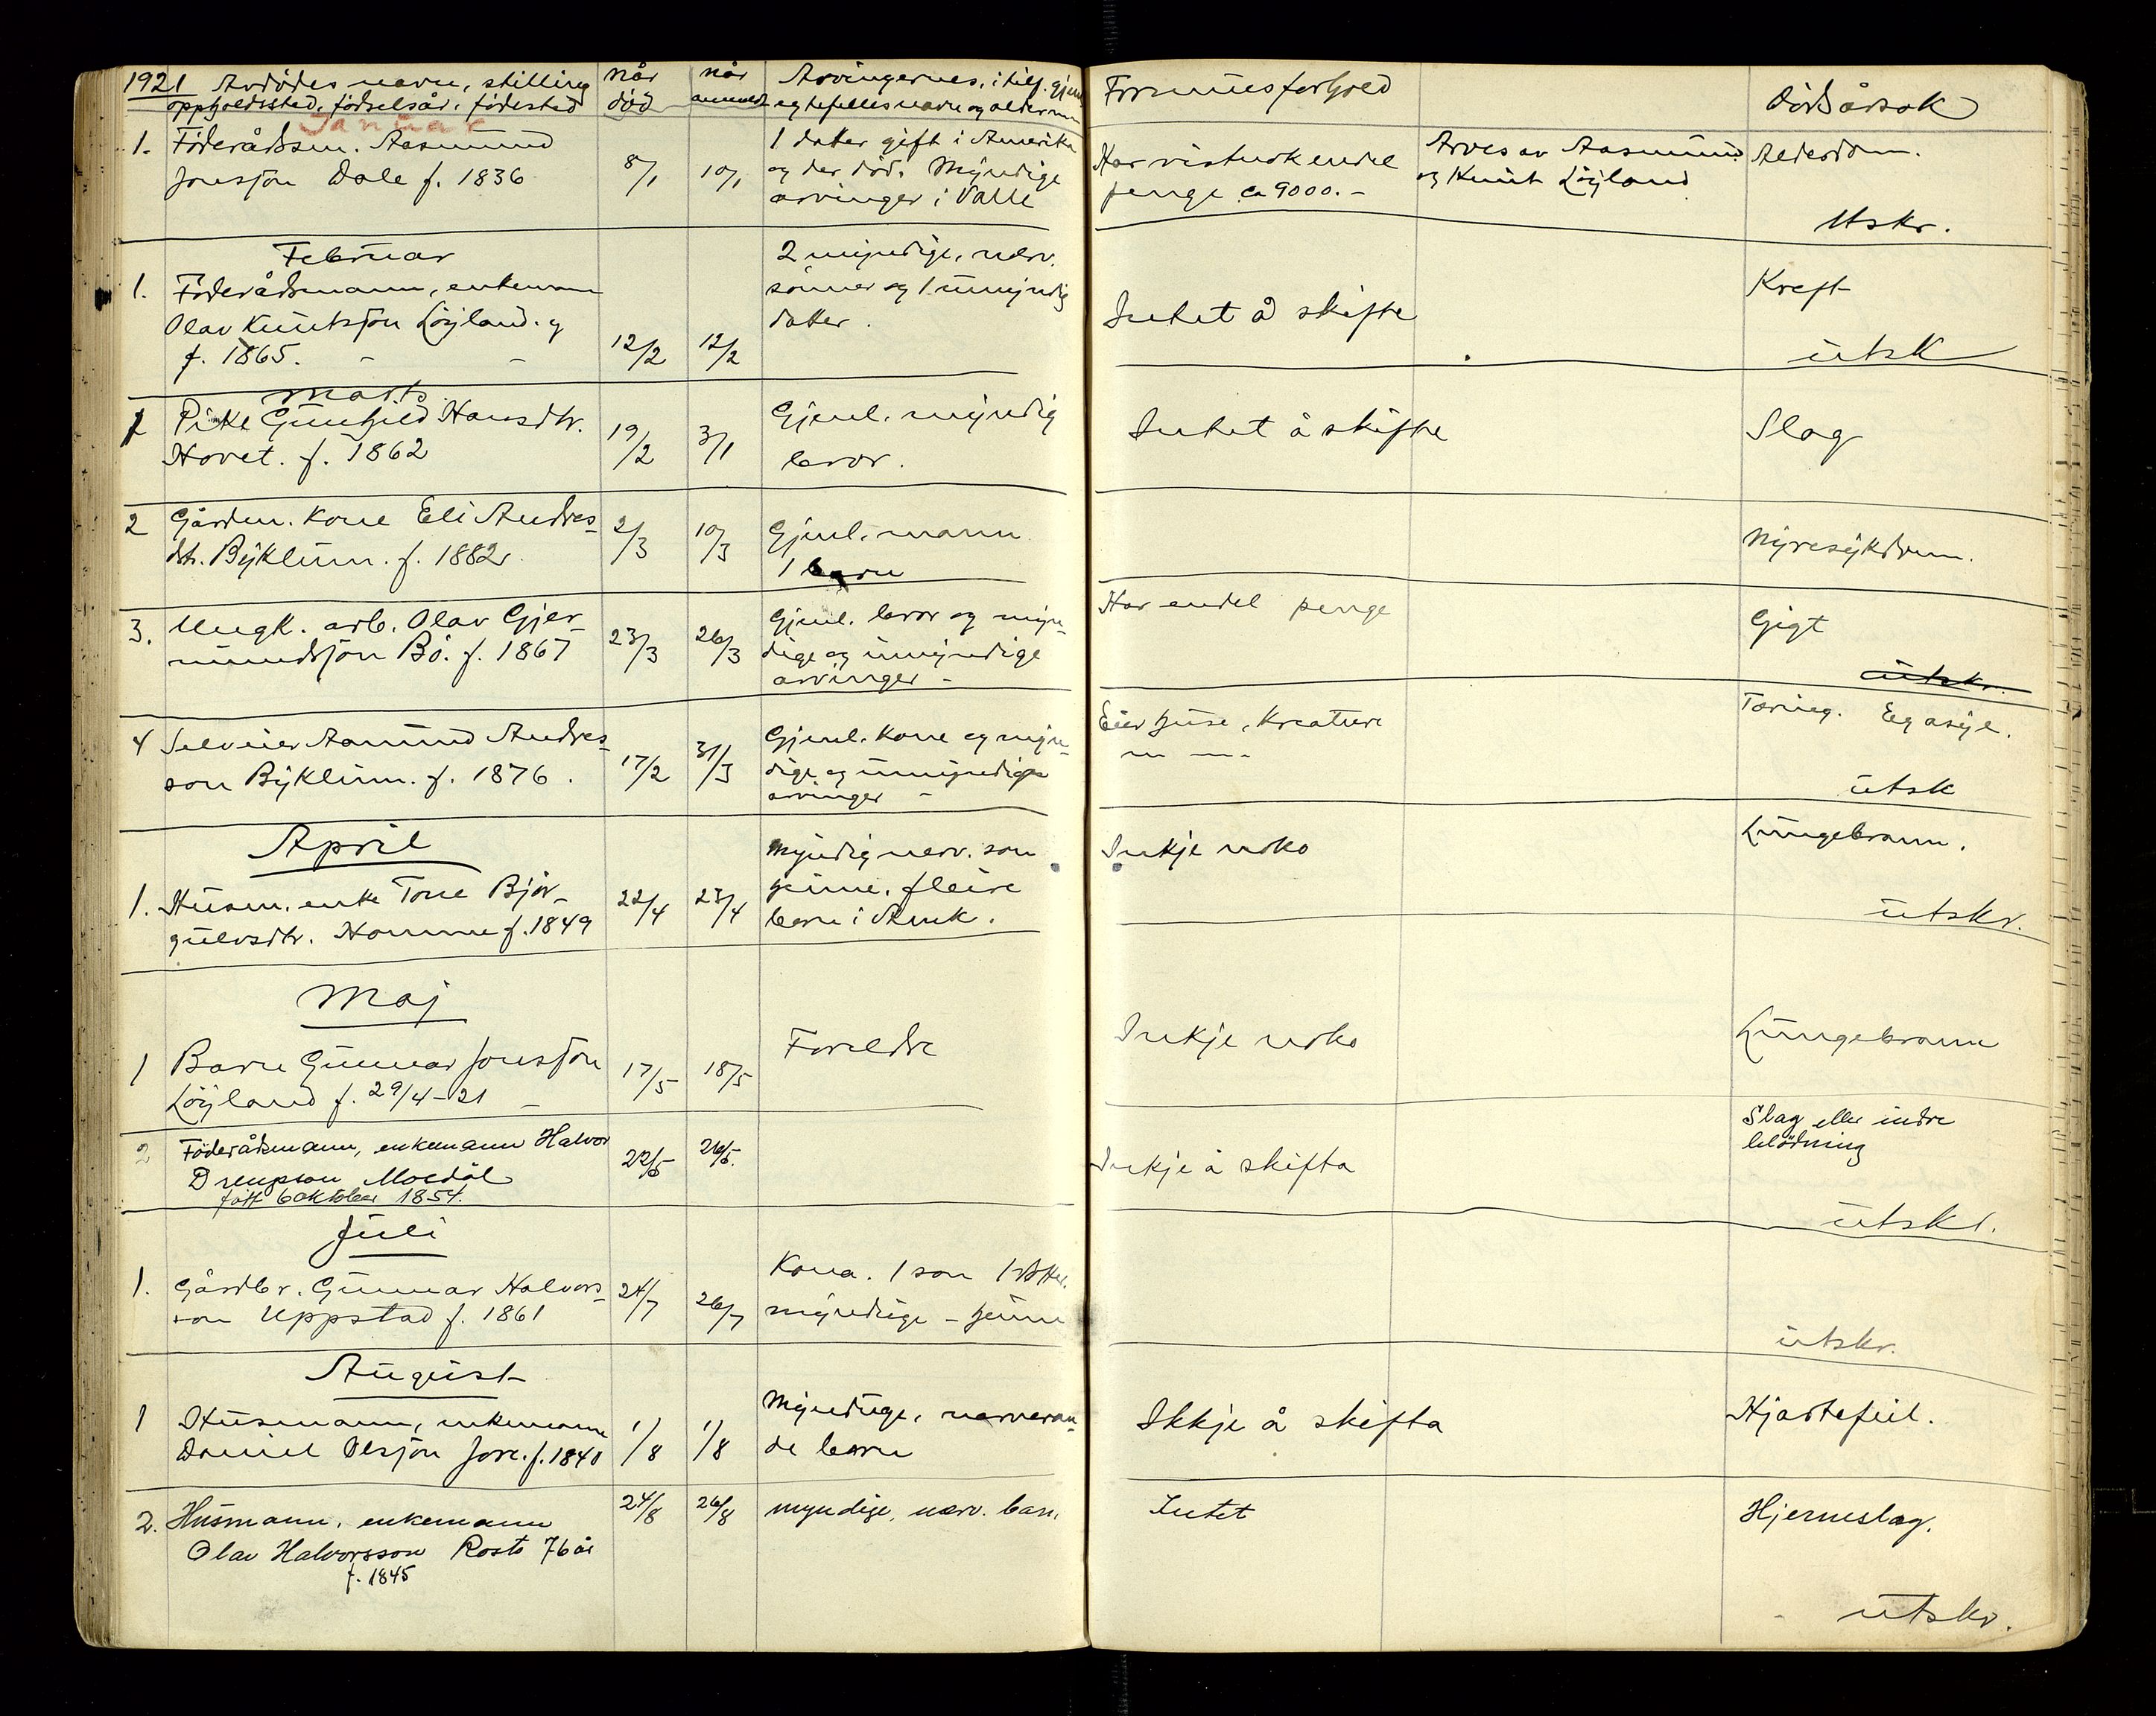 1921 Avdødes navn, stilling når når Arvingernes, i tilf. gjenl. Formuesforhold Dødsårsak
oppholdssted, fødselsår, fødested død anmeldt egtefelles navn og alder
Januar
1. Föderådsm. Aasmund 8/1 10/1 1 datter gift i Amerika Har vistnok endel Arves av Aasmund Alderdom.
Jonsson Dale f. 1836 og der död. Myndige penge ca 9000.- og Knut Löyland
arvinger i Valle Utskr.
Februar 2 myndige, nærv.
1. Föderådsmann, enkemann sönner og 1 umyndig Intet å skifte Kreft
Olav Knutsson Löyland. datter.
f. 1865. - - 12/2 12/2 utsk
Marts
1 Pike Gunhild Hansdtr. 19/2 3/1 Gjenl. myndig Intet å skifte Slag
Hovet. f. 1862 bror.
2 Gårdm. kone Eli Andres- 2/3 10/3 Gjenl. mann Nyresykdom.
dtr. Byklum. f. 1882 1 barn
3. Ungk. arb. Olav Gjer- 23/3 26/3 Gjenl. bror og myn- Har endel penge Gigt
mundsson Bö. f. 1867 dige og umyndige
arvinger - utskr.
4 Selveier Aamund Andres- 17/2 31/3 Gjenl. kone og myn- Eier huse, kreature Tæring. Eg asyl.
son Byklum. f. 1876. dige og umyndige
arvinger - utsk
April Myndig nærv. son Inkje noko Lungebrann.
1. Husm. enke Tone Björ- 22/4 23/4 heime, fleire
gulvsdtr. Homme f. 1849 barn i Amk. utskr.
Maj
1 Barn Gunnar Jonsson 17/5 18/5 Foreldre Inkje noko Lungebrann
Löyland f. 29/4-21 -
2 Föderådsmann, enkemann Halvor 22/5 26/5. Inkje å skifta Slag eller indre
Drengson Moedal blödning
född 6 oktober 1854. utskr.
Juli
1. Gårdbr. Gunnar Halvors- 24/7 26/7 Kona. 1 son 1 dotter.
son Uppstad f. 1861 myndige - heime utskr.
August
1 Husmann, enkemann 1/8 1/8 Myndige, nærveran- Ikkje å skifta Hjartefeil.
Daniel Olsson Jore. f. 1840 de barn
2. Husmann, enkemann 24/8 26/8 myndige, nærv. barn Intet Hjerneslag.
Olav Halvorsson Rosto 76 år
f. 1845
utskr.